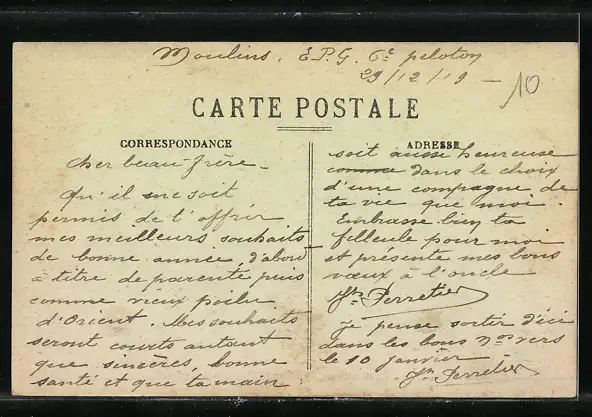 Moulins, E.P.G. 6e peloton
29/12/19 -
10
CARTE POSTALE
CORRESPONDANCE
Cher beau-frère -
Qu'il me soit
permis de t'offrir
mes meilleurs souhaits
de bonne année, d'abord
à titre de parenté puis
comme vieux poilu
d'Orient. Mes souhaits
seront courts autant
que sincères, bonne
santé et que ta main
ADRESSE
soit aussi heureuse
comme dans le choix
d'une compagne de
ta vie que moi.
Embrasse bien ta
filleule pour moi
et présente mes bons
vœux à l'oncle
Perretier
Je pense sortir d'ici
dans les bons vers
le 10 janvier
Perretier